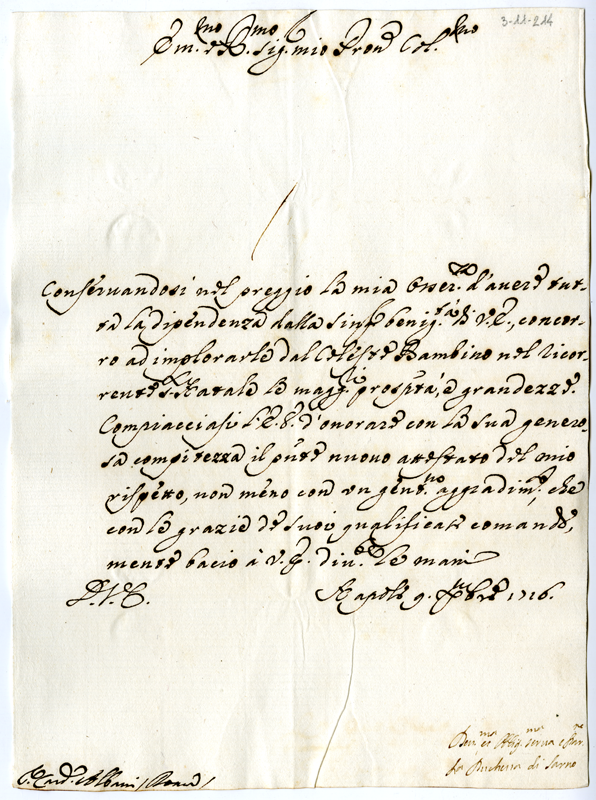 3-11-214
Em.mo e R.mo Sig.r mio Pron. Col.mo
Conservandosi nel preggio la mia osser.za d'avere tut-
ta la dipendenza dalla sing. benig.tà di V.E., concor-
ro ad implorarle dal Celeste Bambino nel ricor-
rente S. Natale le magg.ri prosp.tà, e grandezze.
Compiacciasi l'E.V. d'onorare con la sua genero-
sa compitezza il pnte nuovo attestato del mio
rispetto, non meno con un gent.mo aggradim.to, che
con le grazie de suoi qualificati comandi,
mente bacio à V.E. div.te le mani
D.V.E. Napoli 9. Xmbre 1716.
Dev.ma et Oblig.ma serva e Par.
La Duchessa di Sarno
S.r Card.e Albani / Roma /